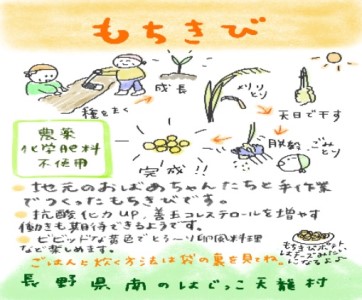 もちきび
種をまく
成長
メリリとり
天日で干す
脱穀
ごみとり
完成!!
農薬
化学肥料
不使用
地元のおばあちゃんたちと手作業
でつくったもちきびです。
抗酸化力UP、善玉コレステロールを増やす
働きも期待できるようです。
ビビッドな黄色でとろ〜り卵風料理
など楽しめます。
ごはんと炊く方法は袋の裏を見てね。
長野県南のはじっこ天龍村